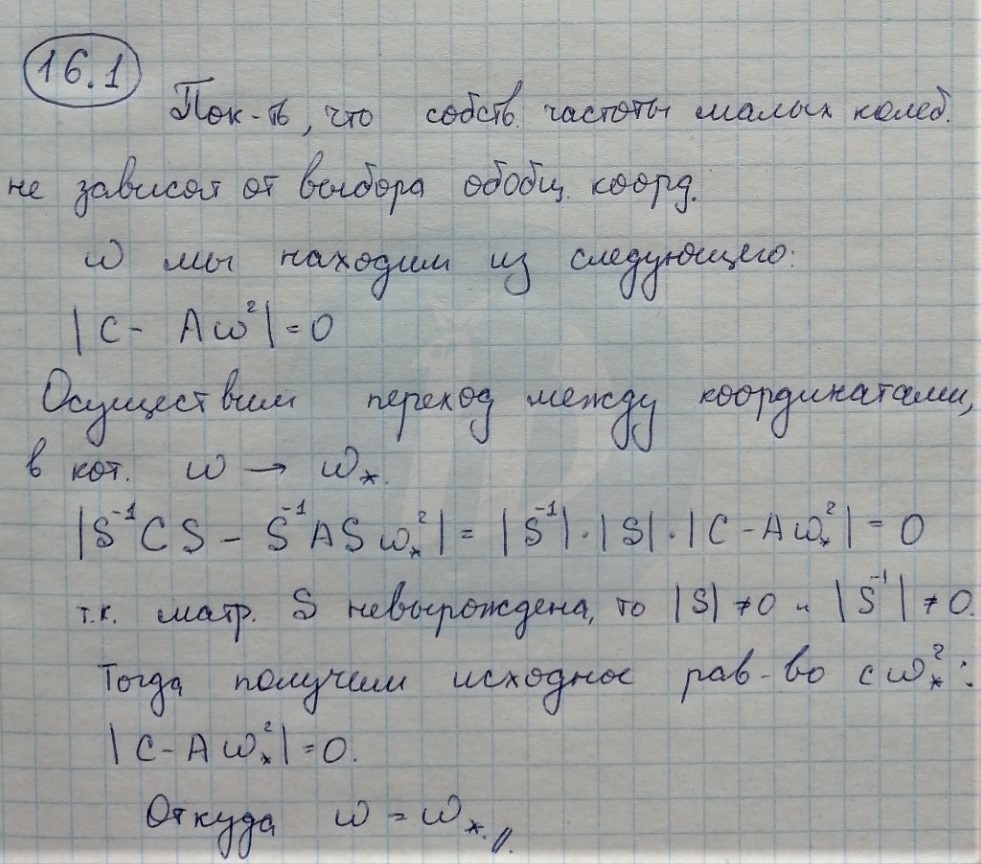 16.1
Пок-ть, что собств. частоты малых колеб.
не зависят от выбора обобщ. коорд.
ω мы находим из следующего:
|C - Aω²| = 0
Осуществим переход между координатами,
в кот. ω → ω*.
|S⁻¹CS - S⁻¹ASω*²| = |S⁻¹|·|S|·|C - Aω*²| = 0
т.к. матр. S невырождена, то |S| ≠ 0 и |S⁻¹| ≠ 0.
Тогда получим исходное рав-во с ω*²:
|C - Aω*²| = 0.
Откуда ω = ω*.//